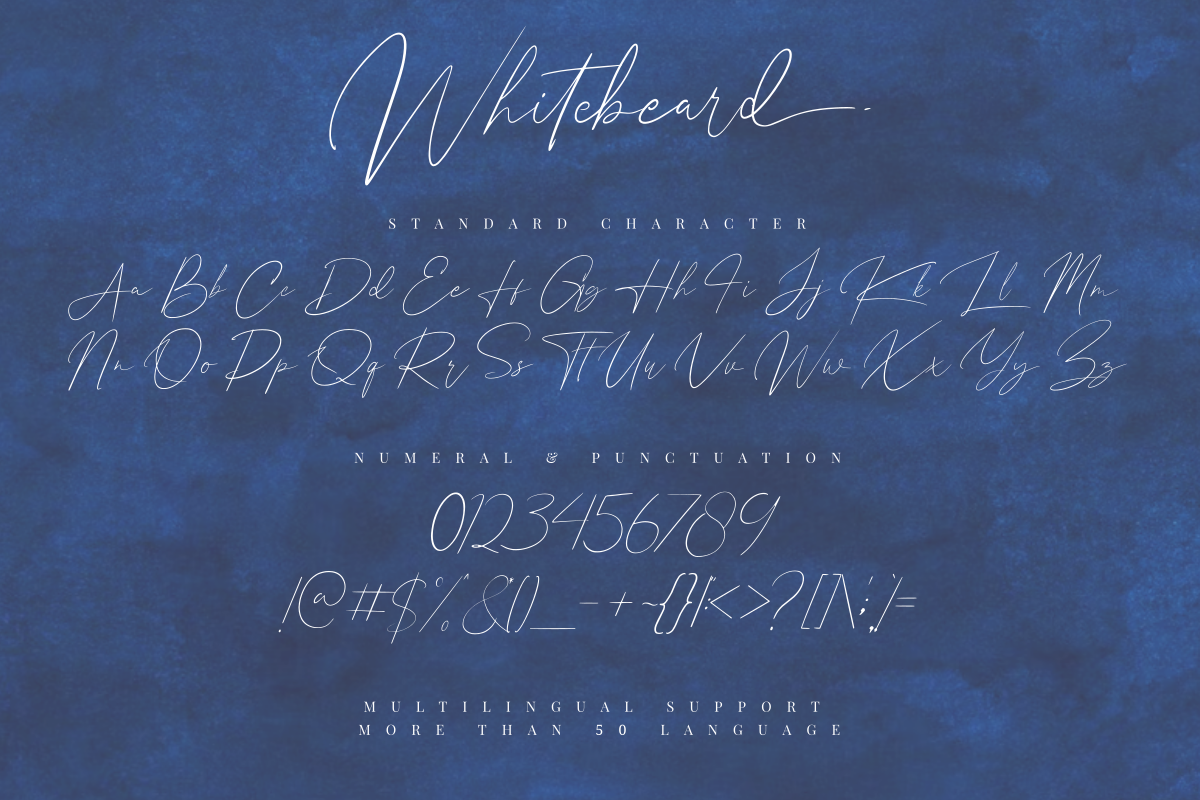 Whitebeard
STANDARD CHARACTER
Aa Bb Cc Dd Ee Ff Gg Hh Ii Jj Kk Ll Mm
Nn Oo Pp Qq Rr Ss Tt Uu Vv Ww Xx Yy Zz
NUMERAL & PUNCTUATION
0123456789
!@#$%^&*()_-+~{}|:<>?[]\;',./=
MULTILINGUAL SUPPORT
MORE THAN 50 LANGUAGE